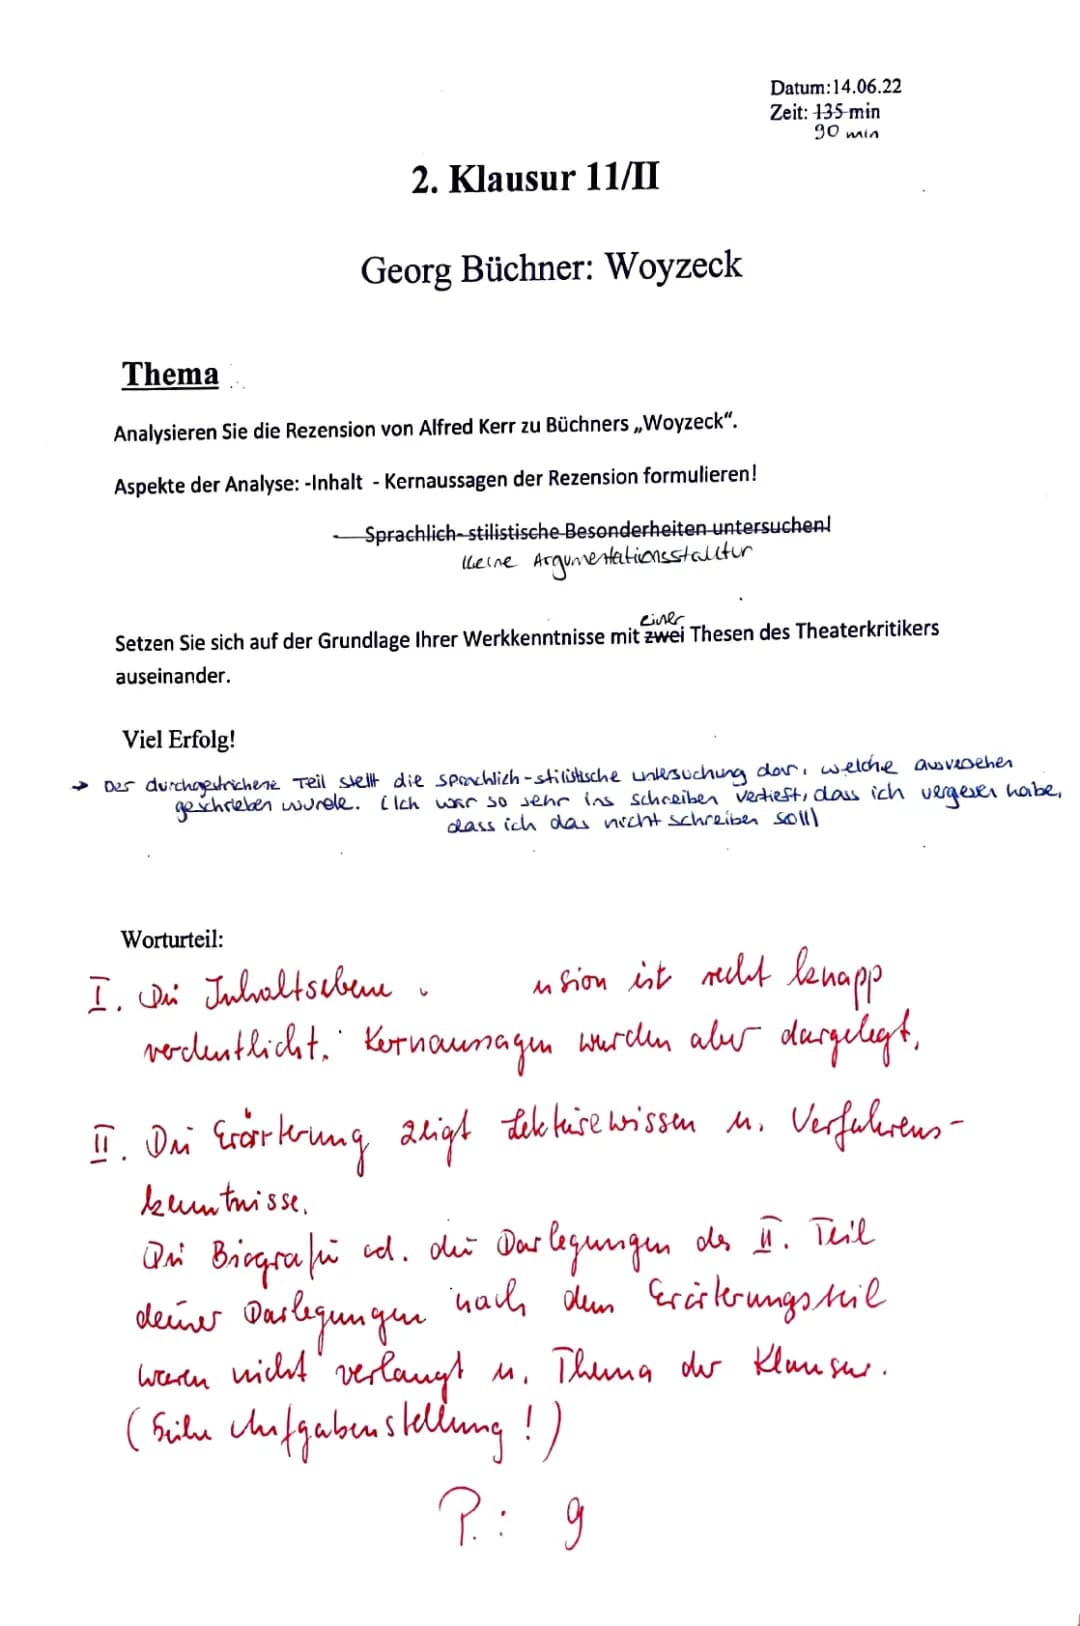 Datum:14.06.22
Zeit: 135 min
90 min
2. Klausur 11/II
Georg Büchner: Woyzeck
Thema
Analysieren Sie die Rezension von Alfred Kerr zu Büchners „Woyzeck“.
Aspekte der Analyse: -Inhalt - Kernaussagen der Rezension formulieren!
- Sprachlich-stilistische Besonderheiten untersuchen!
keine Argumentationsstruktur
einer
Setzen Sie sich auf der Grundlage Ihrer Werkkenntnisse mit zwei Thesen des Theaterkritikers
auseinander.
Viel Erfolg!
→ Der durchgestrichene Teil stellt die sprachlich-stilistische untersuchung dar, welche ausversehen
geschrieben wurde. (Ich war so sehr ins schreiben vertieft, dass ich vergesen habe,
dass ich das nicht schreiben soll)
Worturteil:
I. Die Inhaltsebene nsion ist recht knapp
verdeutlicht. Kernaussagen wurden aber dargelegt.
II. Die Erörterung zeigt Lektürewissen u. Verfahrens-
kenntnisse.
Die Biografie od. die Darlegungen des II. Teil
deiner Darlegungen nach dem Erörterungsteil
waren nicht verlangt u. Thema der Klausur.
(Siehe Aufgabenstellung!)
P.: 9